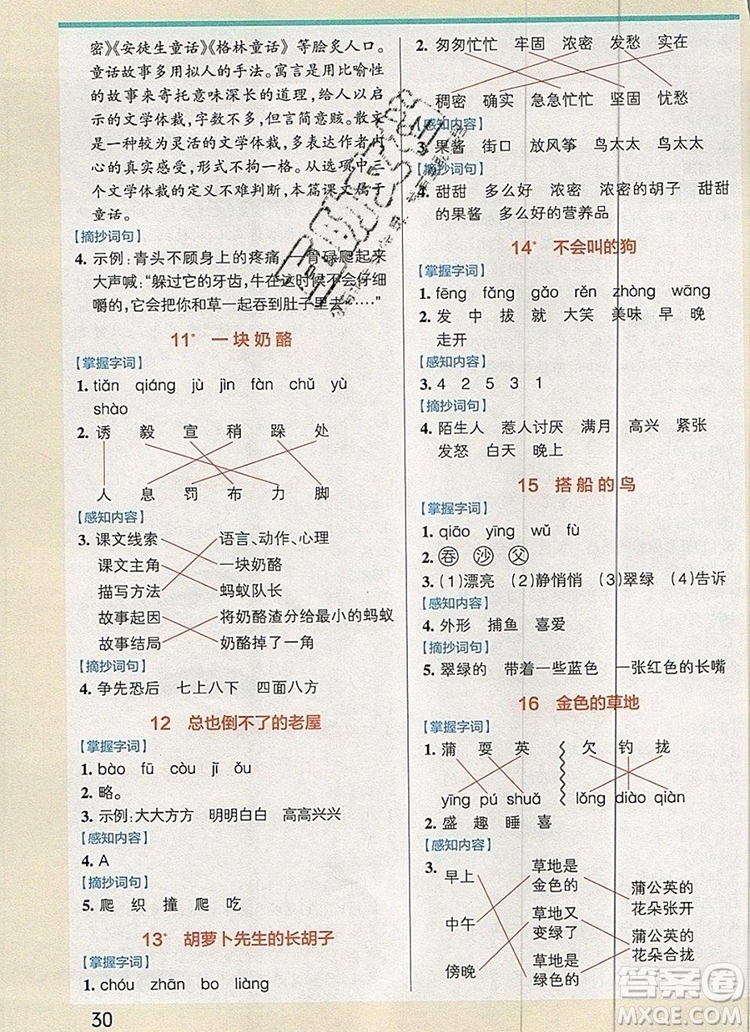 密》《安徒生童话》《格林童话》等脍炙人口。
童话故事多用拟人的手法。寓言是用比喻性
的故事来寄托意味深长的道理，给人以启
示的文学体裁，字数不多，但言简意赅。散文
是一种较为灵活的文学体裁，多表达作者内
心的真实感受，形式不拘一格。从选项中三
个文学体裁的定义不难判断，本篇课文属于
童话。
【摘抄词句】
4. 示例：青头不顾身上的疼痛，一骨碌爬起来
大声喊：“躲过它的牙齿，牛在这时候不会仔细
嚼的，它会把你和草一起吞到肚子里去……”
11* 一块奶酪
【掌握字词】
1. tiǎn qiáng jù jìn fàn chǔ yù
shào
2. 诱 毅 宣 稍 跺 处
人 息 罚 布 力 脚
【感知内容】
3. 课文线索 语言、动作、心理
课文主角 一块奶酪
描写方法 蚂蚁队长
故事起因 将奶酪渣分给最小的蚂蚁
故事结局 奶酪掉了一角
【摘抄词句】
4. 争先恐后 七上八下 四面八方
12 总也倒不了的老屋
【掌握字词】
1. bào fū còu jǐ ǒu
2. 略。
3. 示例：大大方方 明明白白 高高兴兴
【感知内容】
4. A
【摘抄词句】
5. 爬 织 撞 爬 吃
13* 胡萝卜先生的长胡子
【掌握字词】
1. chóu zhān bo liàng
30
2. 匆匆忙忙 牢固 浓密 发愁 实在
稠密 确实 急急忙忙 坚固 忧愁
【感知内容】
3. 果酱 街口 放风筝 鸟太太 鸟太太
【摘抄词句】
4. 甜甜 多么好 浓密 浓密的胡子 甜甜
的果酱 多么好的营养品
14* 不会叫的狗
【掌握字词】
1. fēng fǎng gǎo rěn zhòng wāng
2. 发 中 拔 就 大笑 美味 早 晚
走开
【感知内容】
3. 4 2 5 3 1
【摘抄词句】
4. 陌生人 惹人讨厌 满月 高兴 紧张
发怒 白天 晚上
15 搭船的鸟
【掌握字词】
1. qiāo yīng wǔ fù
2. 吞 沙 父
3. (1)漂亮 (2)静悄悄 (3)翠绿 (4)告诉
【感知内容】
4. 外形 捕鱼 喜爱
【摘抄词句】
5. 翠绿的 带着一些蓝色 一张红色的长嘴
16 金色的草地
【掌握字词】
1. 蒲 耍 英 欠 钓 拢
yīng pú shuǎ lǒng diào qiàn
2. 盛 趣 睡 喜
【感知内容】
3. 早上 草地是
金色的 蒲公英的
花朵张开
中午 草地又
变绿了 蒲公英的
花朵合拢
傍晚 草地是
绿色的
答案圈
MXQE.COM